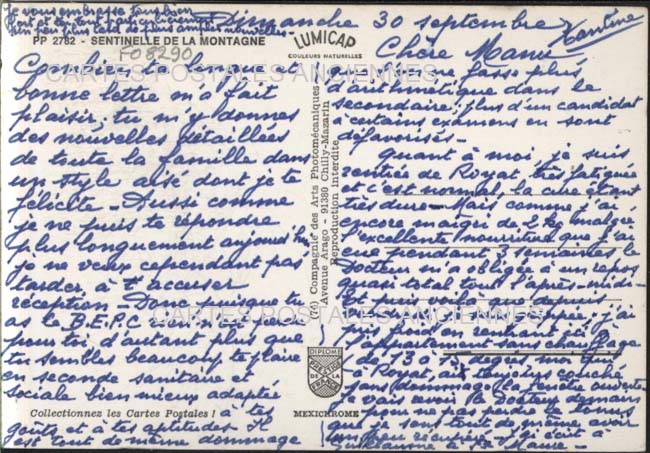 Dimanche 30 septembre
Chère Marie
Combien ta longue et
bonne lettre m'a fait
plaisir; tu m'y donnes
des nouvelles détaillées
de toute la famille dans
un style aisé dont je te
félicite - Aussi comme
je ne puis te répondre
plus longuement aujourd'hui
je ne veux cependant pas
tarder, à t'accuser
réception - Donc puisque tu
as le B.E.P.C rien n'est perdu
pour toi d'autant plus que
tu sembles beaucoup te plaire
en seconde sanitaire et
sociale bien mieux adaptée
à tes
goûts et à tes aptitudes Il
est tout de même dommage
qu'on ne fasse plus
d'arithmétique dans le
secondaire; plus d'un candidat
à certains examens en sont
défavorisés.
Quant à moi, je suis
rentrée de Royat, très fatiguée
et c'est normal, la cure étant
très dure - Mais comme j'ai
encore maigri de 2 kg malgré
l'excellente nourriture que j'ai
eue pendant 3 semaines le
Docteur m'a obligée à un repos
quasi total tous l'après-midi
et puis voilà que depuis
j'ai
pris froid en rentrant ici
l'appartement sans chauffage
de 13° degrés
à Royat, ai toujours couché
sans dommage la fenêtre ouverte
je vais revoir le Docteur demain
pour ne pas perdre le tonus
que je sens tout de même avoir
un peu récupéré - J'ai écrit à
Je vous embrasse tous bien
fort et toi tout particulièrement
un peu plus tard de plus amples nouvelles
PP 2782 - SENTINELLE DE LA MONTAGNE
F08290
LUMICAP
COULEURS NATURELLES
CARTES POSTALES ANCIENNES
CARTES POSTALES ANCIENNES
(76) Compagnie des Arts Photomécaniques
Avenue Arago - 91380 Chilly-Mazarin
Reproduction interdite
DIPLOME
PRESTIGE
DE LA
FRANCE
MEXICHROME
Collectionnez les Cartes Postales !